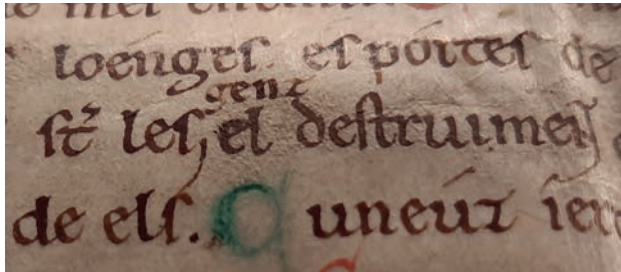 loengeſ. eſ porteſ de
genz
ſt̃ leſ, el deſtruimenz
de elſ. C uneuz ier